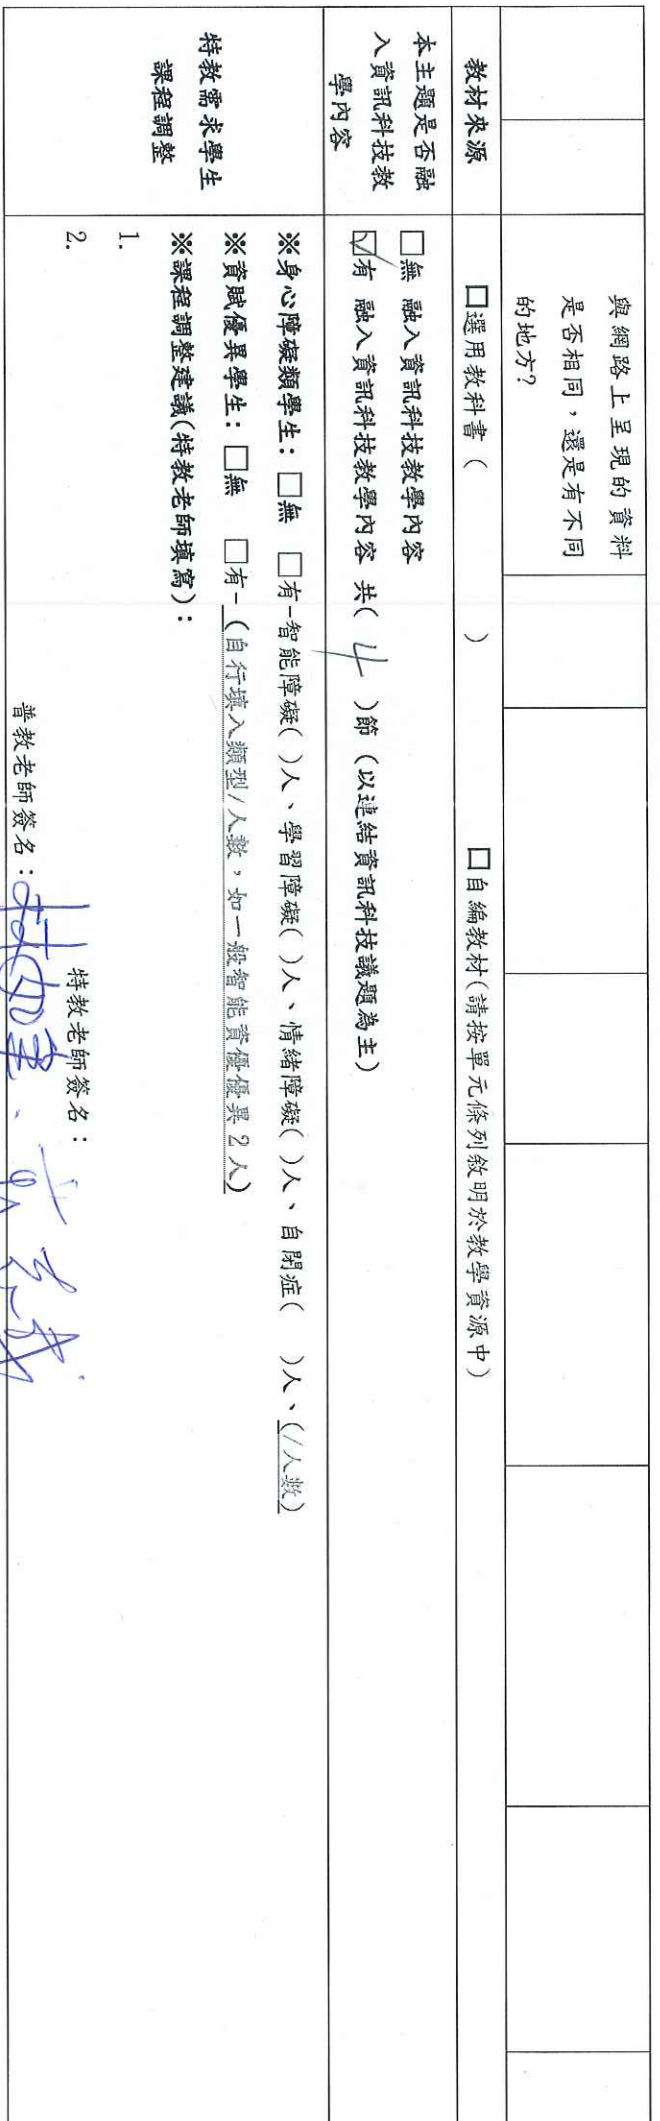 與網路上呈現的資料
是否相同，還是有不同
的地方?
教材來源
□選用教科書 ( )
□自編教材(請按單元條列敘明於教學資源中)
本主題是否融
入資訊科技教
學內容
□無 融入資訊科技教學內容
☑有 融入資訊科技教學內容 共( 4 )節 (以連結資訊科技議題為主)
特教需求學生
課程調整
※身心障礙類學生: □無 □有-智能障礙( )人、學習障礙( )人、情緒障礙( )人、自閉症( )人、(/人數)
※資賦優異學生: □無 □有-(自行填入類型/人數，如一般智能資優優異 2 人)
※課程調整建議(特教老師填寫):
1.
2.
特教老師簽名:
普教老師簽名: